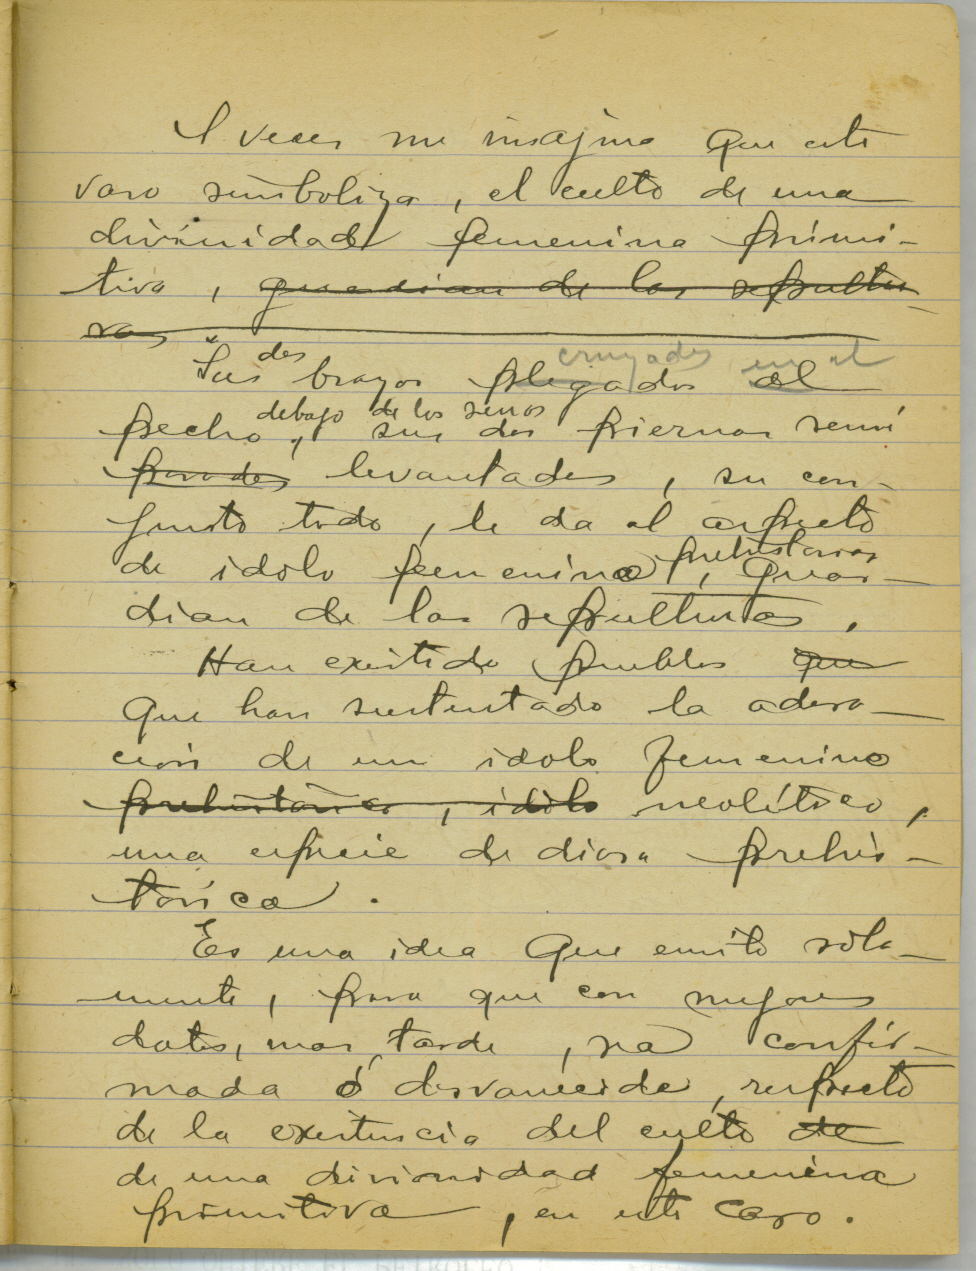 A veces me imagino que este
vaso simboliza, el culto de una
divinidad femenina primi-
tiva, guardian de las sepultu-
ras
Sus dos brazos plegados al
cruzados en el
pecho, sus dos piernas semi
debajo de los senos
paradas levantadas, su con-
junto todo, le da el aspecto
de idolo femenino prehistorico, guar-
dian de las sepulturas.
Han existido pueblos que
que han sustentado la adora-
ción de un idolo femenino
prehistorico, idolo neolítico,
una especie de diosa prehis-
tórica.
Es una idea que emito sola-
mente, para que con mejores
datos, mas tarde, sea confir-
mada ó desvanecida, respecto
de la existencia del culto de
de una divinidad femenina
primitiva, en este caso.